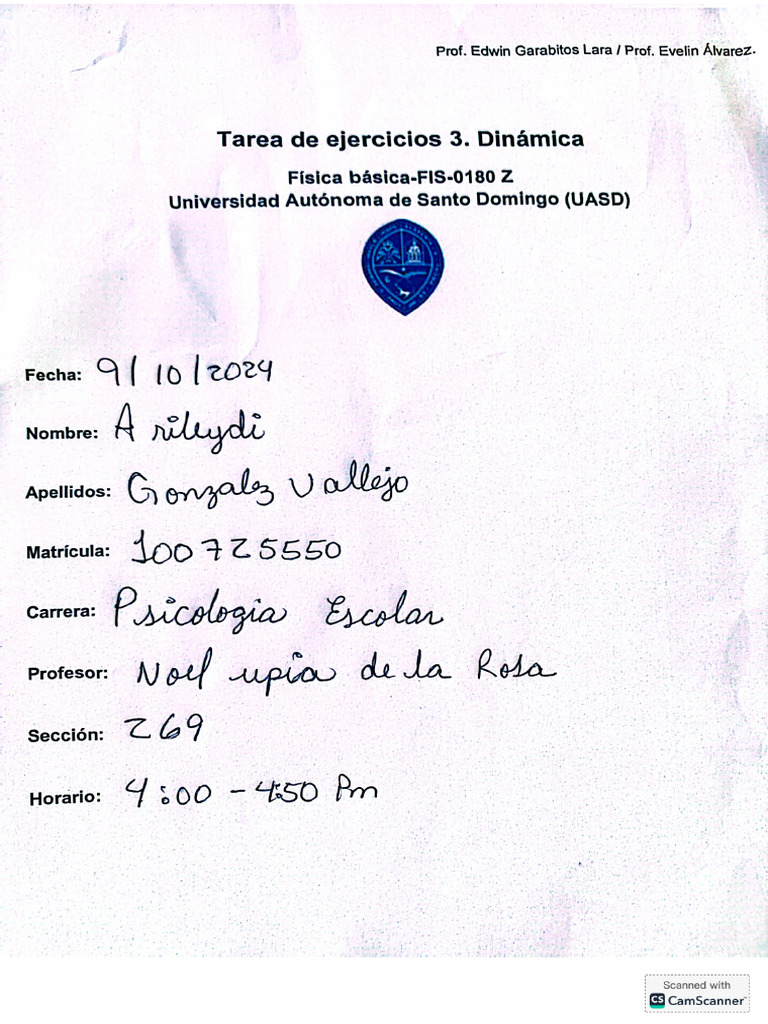 Prof. Edwin Garabitos Lara / Prof. Evelin Álvarez.
Tarea de ejercicios 3. Dinámica
Física básica-FIS-0180 Z
Universidad Autónoma de Santo Domingo (UASD)
Fecha: 9/10/2024
Nombre: Arileydi
Apellidos: Gonzalez Vallejo
Matrícula: 100725550
Carrera: Psicologia Escolar
Profesor: Noel upia de la Rosa
Sección: Z69
Horario: 4:00 - 4:50 Pm
Scanned with
CS CamScanner